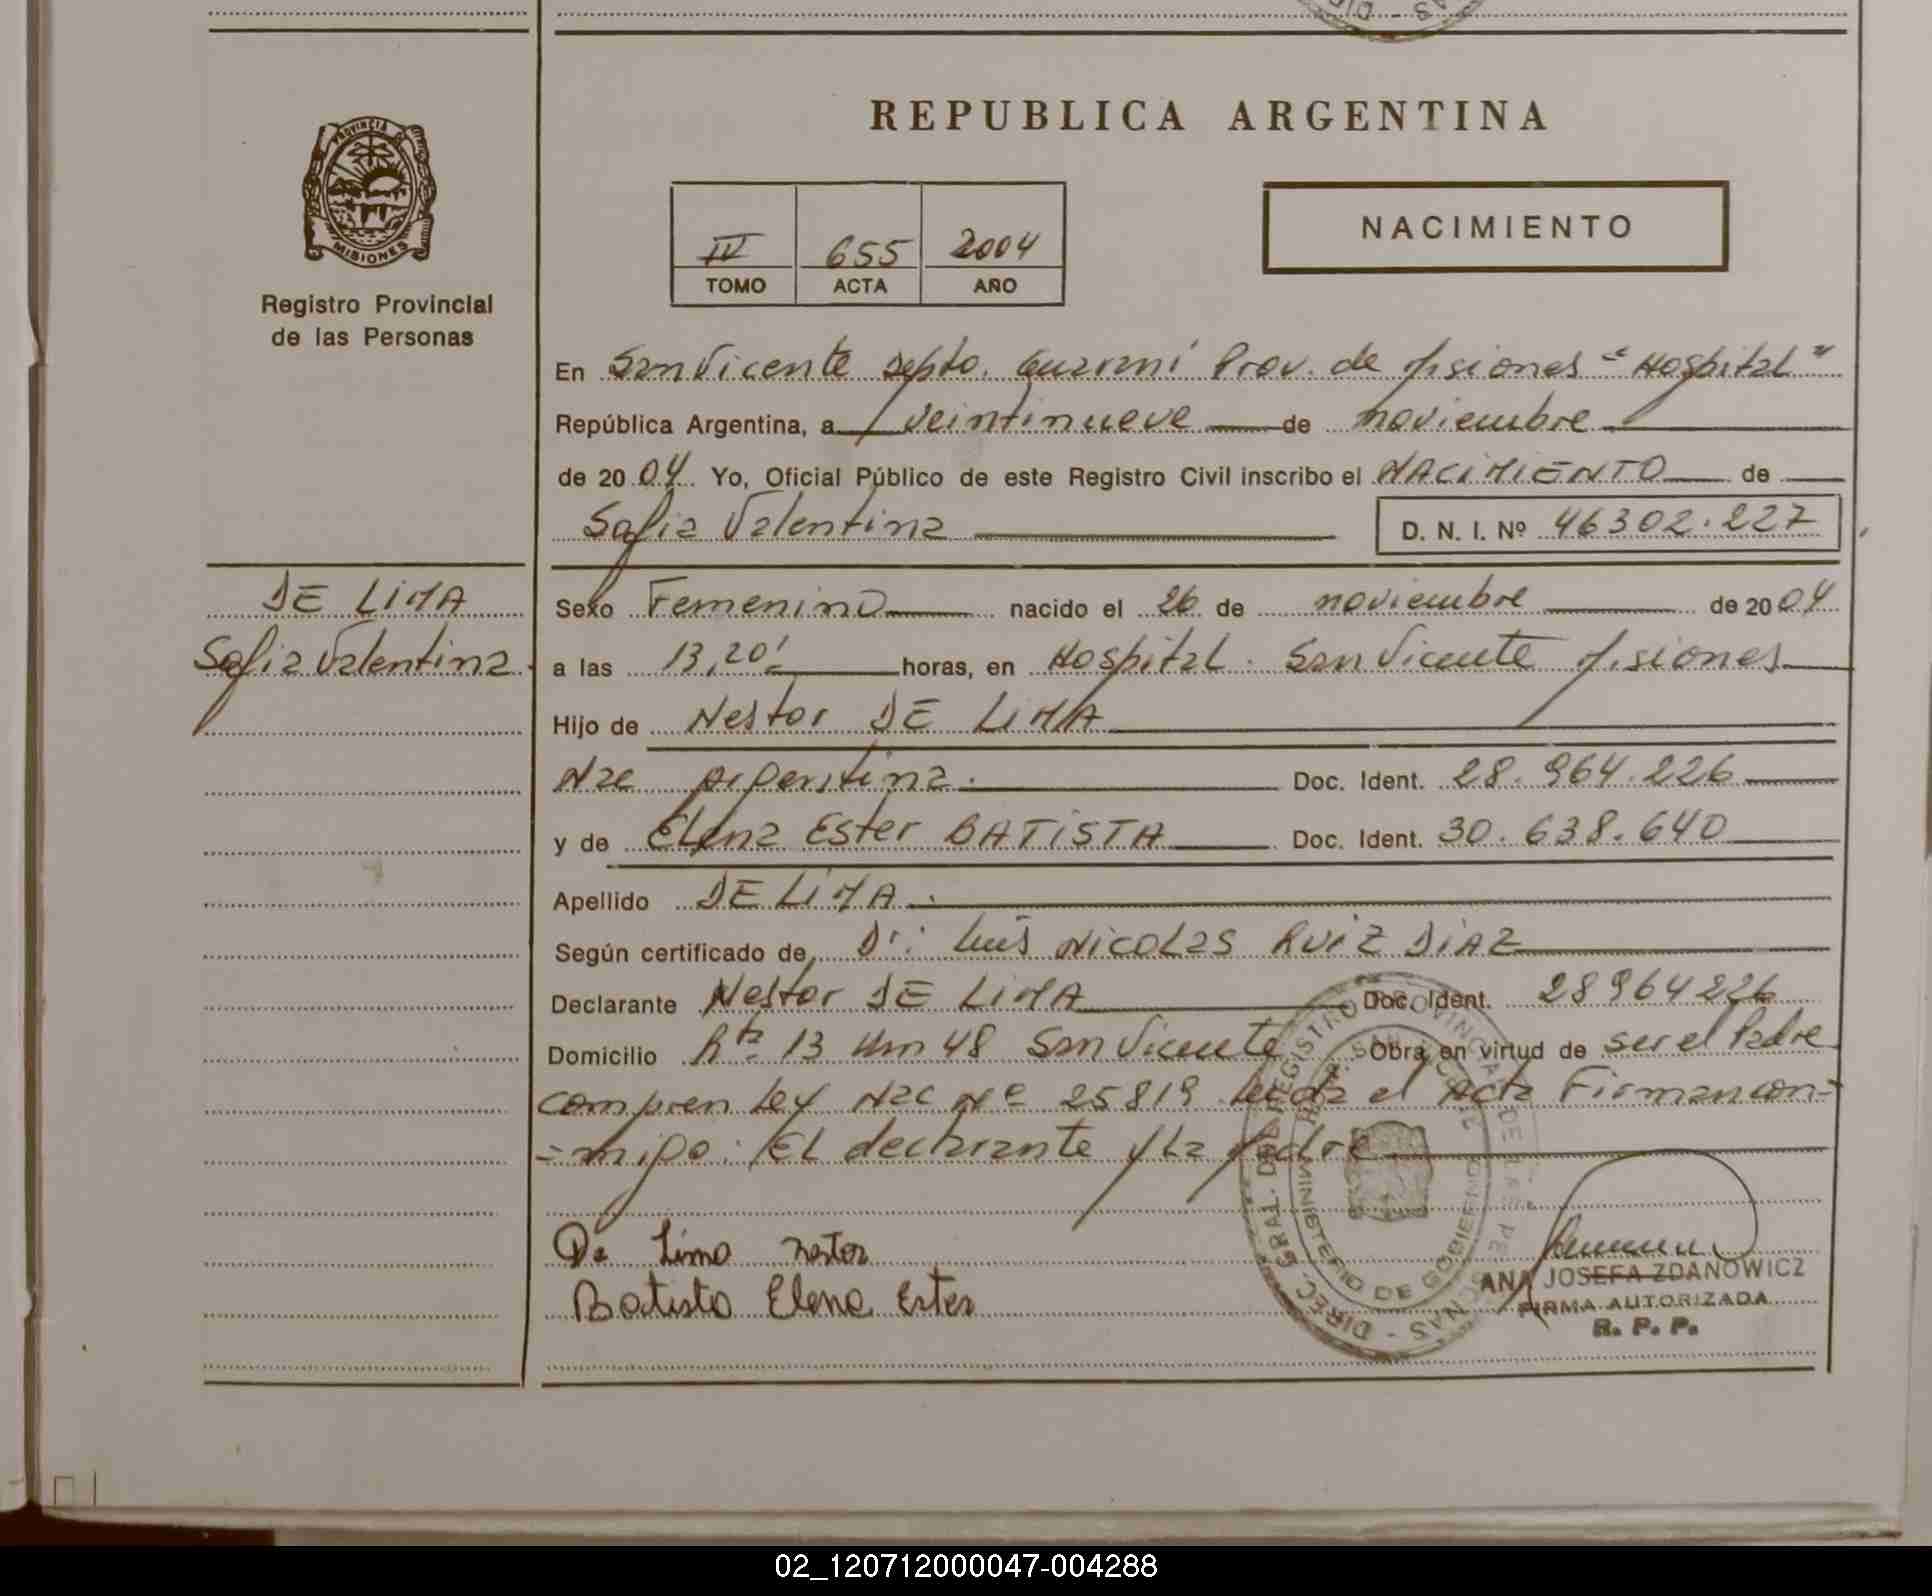 REPUBLICA ARGENTINA
PROVINCIA DE MISIONES
Registro Provincial
de las Personas
NACIMIENTO
IV 655 2004
TOMO ACTA AÑO
En San Vicente Depto. Guaraní Prov. de Misiones "Hospital"
República Argentina, a veintinueve de noviembre
de 2004 Yo, Oficial Público de este Registro Civil inscribo el NACIMIENTO de
Sofia Valentina D. N. I. Nº 46302.227
DE LIMA
Sofia Valentina
Sexo Femenino nacido el 26 de noviembre de 2004
a las 13,20' horas, en Hospital. San Vicente Misiones
Hijo de Nestor DE LIMA
Nac Argentina. Doc. Ident. 28.964.226
y de Elena Ester BATISTA Doc. Ident. 30.638.640
Apellido DE LIMA.
Según certificado de Dr: Luis Nicolas Ruiz Diaz
Declarante Nestor DE LIMA Doc. Ident. 28964226
Domicilio Rta 13 Km 48 San Vicente Obra en virtud de ser el Padre
compren Ley Nac Nº 25819 leida el Acta Firman con=
=migo: El declarante y La Madre
De Lima nestor
Batista Elena Ester
DIREC. GRAL. DEL REGISTRO PROVINCIAL DE LAS PERSONAS
MINISTERIO DE GOBIERNO
ANA JOSEFA ZDANOWICZ
FIRMA AUTORIZADA
R. P. P.
02_120712000047-004288